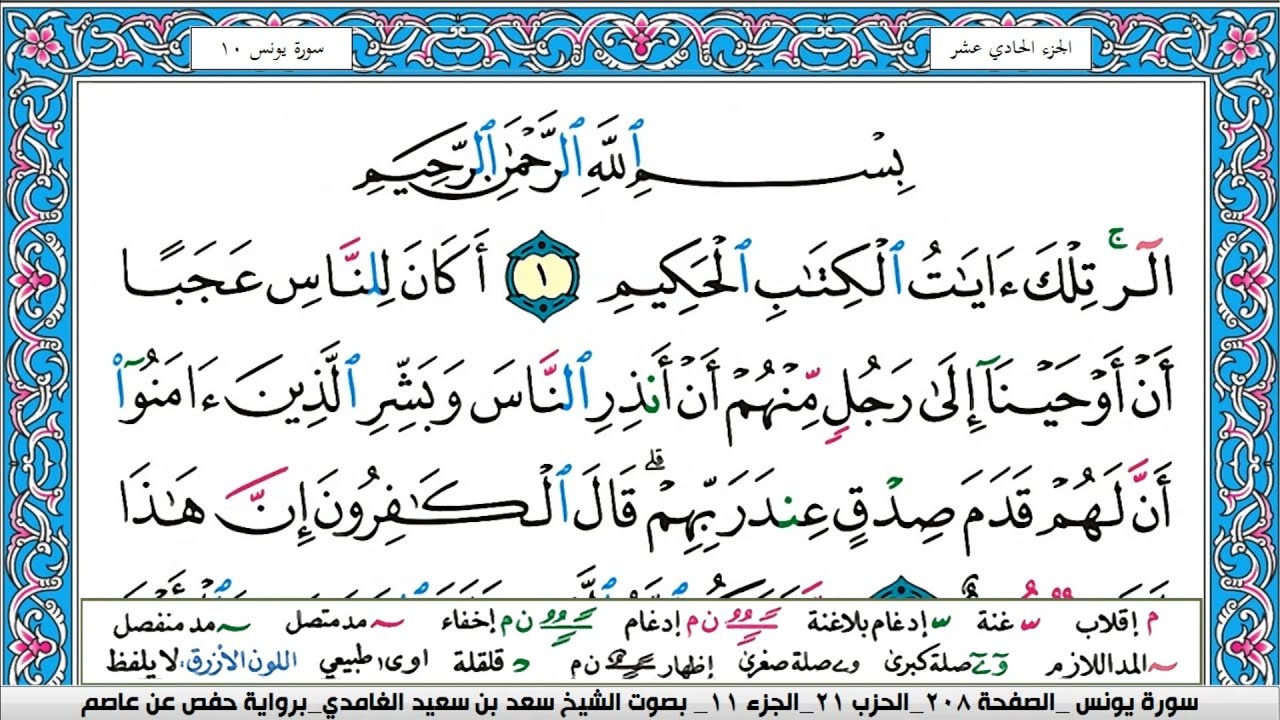 الجزء الحادي عشر
سورة يونس ١٠
بِسْمِ ٱللَّهِ ٱلرَّحْمَٰنِ ٱلرَّحِيمِ
الٓر ۚ تِلْكَ ءَايَٰتُ ٱلْكِتَٰبِ ٱلْحَكِيمِ ١ أَكَانَ لِلنَّاسِ عَجَبًا
أَنْ أَوْحَيْنَآ إِلَىٰ رَجُلٍ مِّنْهُمْ أَنْ أَنذِرِ ٱلنَّاسَ وَبَشِّرِ ٱلَّذِينَ ءَامَنُوٓا۟
أَنَّ لَهُمْ قَدَمَ صِدْقٍ عِندَ رَبِّهِمْ ۗ قَالَ ٱلْكَٰفِرُونَ إِنَّ هَٰذَا
م إقلاب س غنة س إدغام بلاغنة ن م إدغام ن م إخفاء مد متصل مد منفصل
المد اللازم وے صلة كبرى وے صلة صغرى إظهار ن م د قلقلة اوى طبيعي اللون الأزرق: لا يلفظ
سورة يونس _الصفحة ٢٠٨_الحزب ٢١_الجزء ١١_ بصوت الشيخ سعد بن سعيد الغامدي_برواية حفص عن عاصم